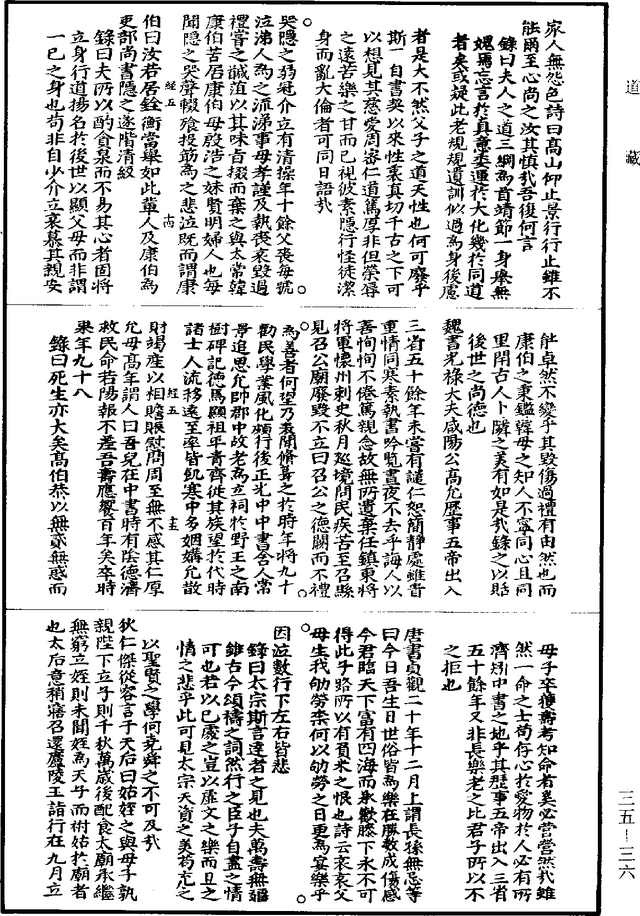 道藏
家人無怨色詩曰高山仰止景行行止雖不
能爾至心尚之汝其慎哉吾復何言
錄曰夫人之道三綱為首靖節一身舉無
媿焉忘言於真意委運於大化幾於同道
者矣或疑此老規規遺訓似過為身後慮
者是大不然父子之道天性也何可廢乎
斯一自書契以來性衷真切千古之下可
以想見其慈愛周審仁道篤厚非但榮辱
之遠苦樂之甘而已視彼素隱行怪徒潔
身而亂大倫者可同日語哉
吳隱之弱冠介立有清操年十餘父喪每號
泣涕人為之流涕事母孝謹及執喪哀毀過
禮嘗之鹹菹以其味旨掇而棄之與太常韓
康伯苦居康伯母殷浩之妹賢明婦人也每
聞隱之哭聲輟飧投筯為之悲泣既而謂康
伯曰汝若居銓衡當舉如此輩人及康伯為
經五
吏部尚書隱之遂階清級
錄曰夫所以酌貪泉而不易其心者固將
立身行道揚名於後世以顯父母而非謂
一已之身也苟非自少介立哀慕其親安
能卓然不變乎其毀傷過禮有由然也而
康伯之秉鑑韓母之知人不寧同心且同
里閈古人卜隣之美有如是哉錄之以貽
後世之尚德也
魏書光祿大夫咸陽公高允歷事五帝出入
三省五十餘年未嘗有譴仁恕簡靜處雖貴
重情同寒素執書吟覽晝夜不去乎誨人以
善恂恂不倦篤親念故無所遺棄任鎮東將
將軍懷州刺史秋月巡境問民疾苦至召縣
見召公廟廢毀不立曰召公之德闕而不禮
為善者何望乃表聞脩葺之於時年將九十
勸民學業風化頗行後正光中中書舍人常
景追思允帥郡中故老為立祠於野王之南
樹碑記德焉顯祖平青齊徙其族望於代時
諸士人流移遠至率皆飢寒中多姻媾允散
經五
財竭產以相贍賑慰問周至無不感其仁厚
允母高年謂人曰吾兒在中書時有陰德濟
救民命若陽報不差吾壽應饗百年矣卒時
年九十八
錄曰死生亦大矣高伯恭以無貳無惑而
母子卒獲壽考知命者奚必營營然哉雖
然一命之士苟存心於愛物於人必有所
濟矧中書之地乎其歷事五帝出入三省
五十餘年又非長樂老之比君子所以不
之拒也
唐書貞觀二十年十二月上謂長孫無忌等
曰今日吾生日世俗皆為樂在朕翻成傷感
今君臨天下富有四海而承歡膝下永不可
得此子路所以有負米之恨也詩云哀哀父
母生我劬勞柰何以劬勞之日更為宴樂乎
因泣數行下左右皆悲
錄曰太宗斯言達者之見也夫萬壽無疆
雖古今頌禱之詞然行之臣子自盡之情
可也若以已處之豈以虛文之樂而且之
情之悲乎此可見太宗天資之美苟充之
以聖賢之學何堯舜之不可及哉
狄仁傑從容言于天后曰姑姪之與母子孰
親陛下立子則千秋萬歲後配食太廟承繼
無窮立姪則未聞姪為天子而祔姑於廟者
也太后意稍寤召還廬陵王詣行在九月立
三五—三六